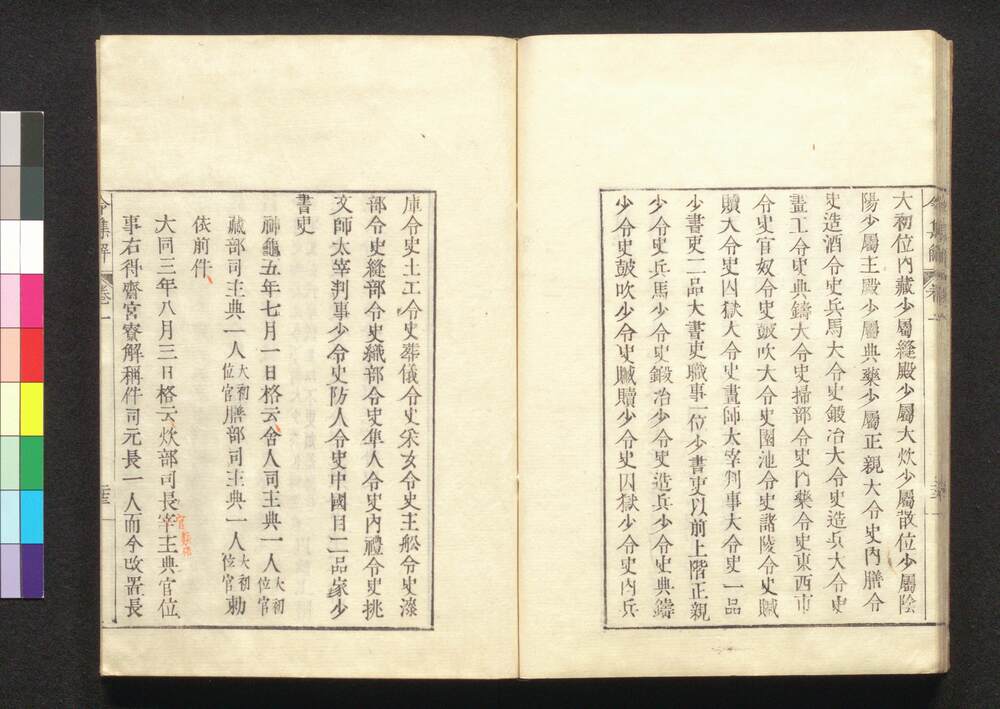 大初位內藏少屬縫殿少屬大炊少屬散位少屬陰
陽少屬主殿少屬典藥少屬正親大令史內膳令
史造酒令史兵馬大令史鍛冶大令史造兵大令史
畫工令史典鑄大令史掃部令史內藥令史東西市
令史官奴令史鼓吹大令史園池令史諸陵令史贓
贖大令史囚獄大令史畫師太宰判事大令史一品
少書吏二品大書吏職事一位少書吏以前上階正親
少令史兵馬少令史鍛冶少令史造兵少令史典鑄
少令史鼓吹少令史贓贖少令史囚獄少令史內兵
庫令史土工令史葬儀令史采女令史主船令史漆
部令史縫部令史織部令史隼人令史內禮令史挑
文師太宰判事少令史防人令史中國目二品家少
書吏
神龜五年七月一日格云舍人司主典一人大初位官
藏部司主典一人大初位官膳部司主典一人大初位官勅
依前件
大同三年八月三日格云炊部司長宰主典官位
事右得齋宮寮解稱件司元長一人而今改置長
令集解 卷一